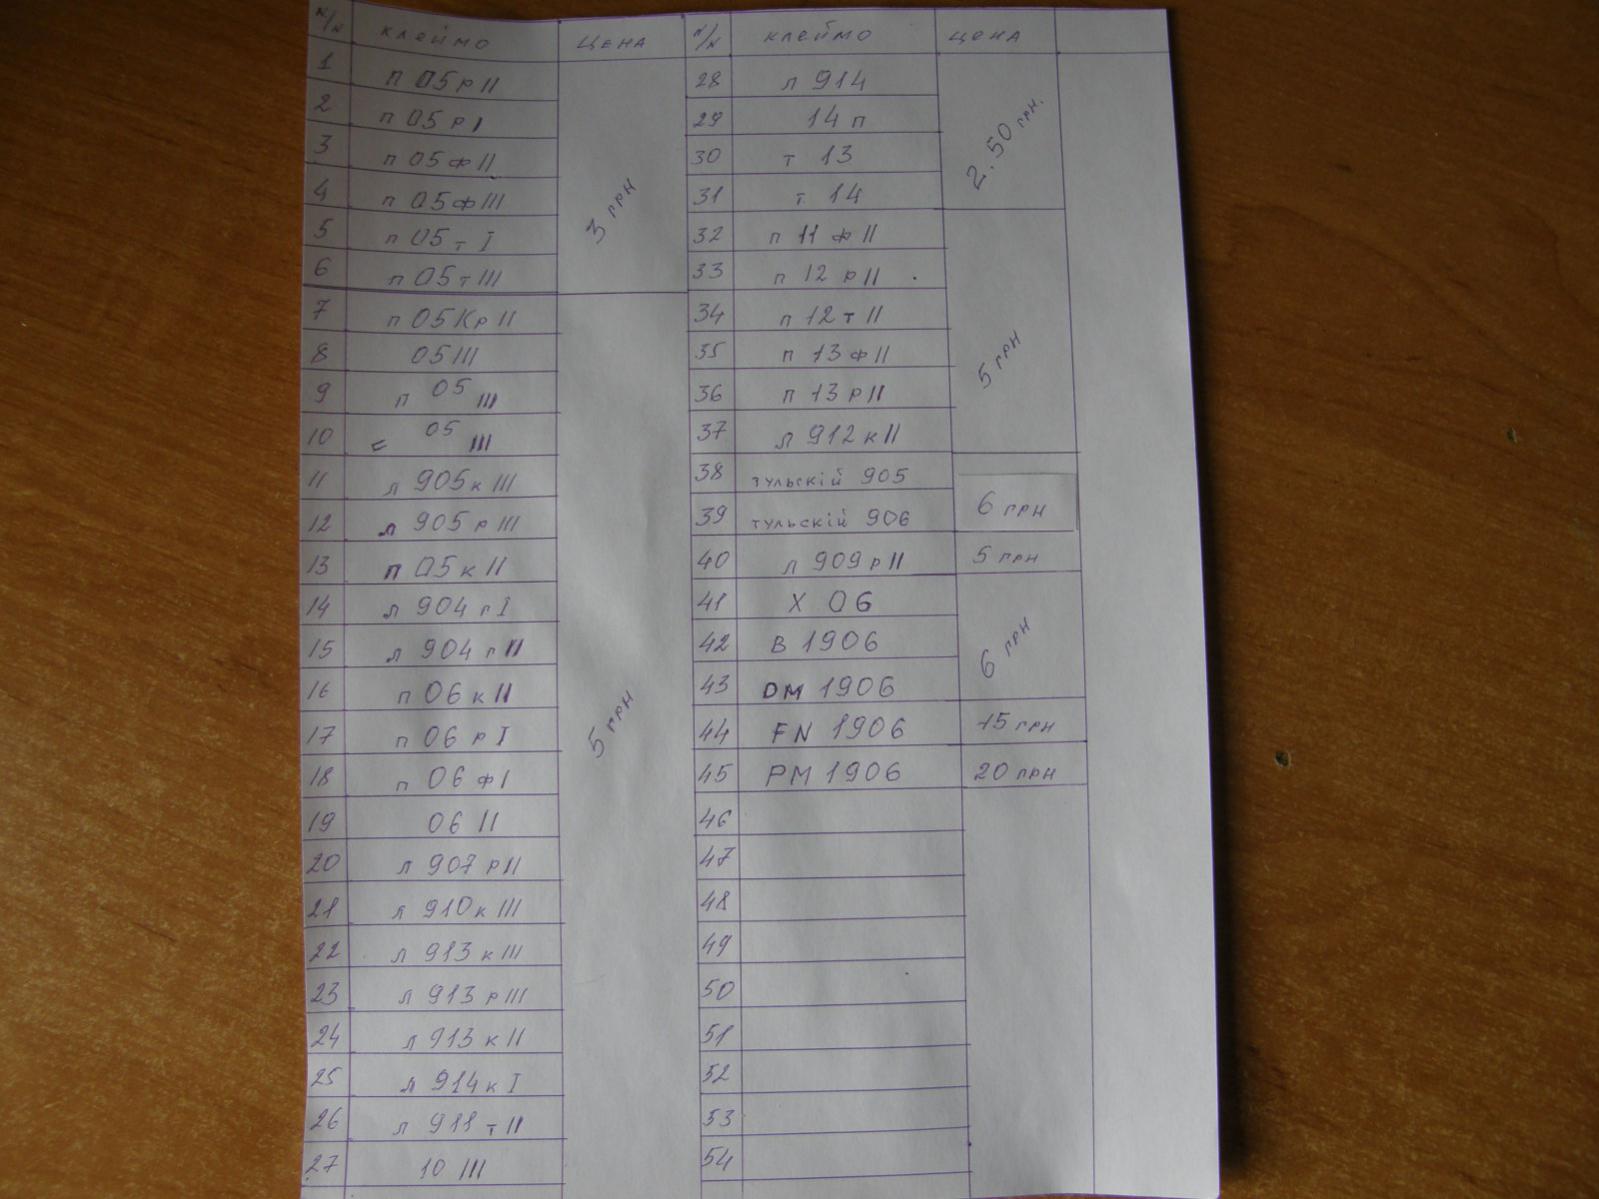 н/н клеймо цена н/н клеймо цена
1 п 05 р II 28 л 914
2 п 05 р I 29 14 п
3 п 05 ф II 30 т 13 2.50 грн.
4 п 05 ф III 3 грн 31 т 14
5 п 05 т I 32 п 11 ф II
6 п 05 т III 33 п 12 р II
7 п 05 Кр II 34 п 12 т II
8 05 III 35 п 13 ф II 5 грн
9 п 05 III 36 п 13 р II
10 05 III 37 л 912 к II
11 л 905 к III 38 тульскій 905
12 л 905 р III 39 тульскій 906 6 грн
13 п 05 к II 40 л 909 р II 5 грн
14 л 904 г I 41 Х 06
15 л 904 г II 42 В 1906 6 грн
16 п 06 к II 43 DM 1906
17 п 06 р I 5 грн 44 FN 1906 15 грн
18 п 06 ф I 45 PM 1906 20 грн
19 06 II 46
20 л 907 р II 47
21 л 910 к III 48
22 л 913 к III 49
23 л 913 р III 50
24 л 913 к II 51
25 л 914 к I 52
26 л 911 т II 53
27 10 III 54